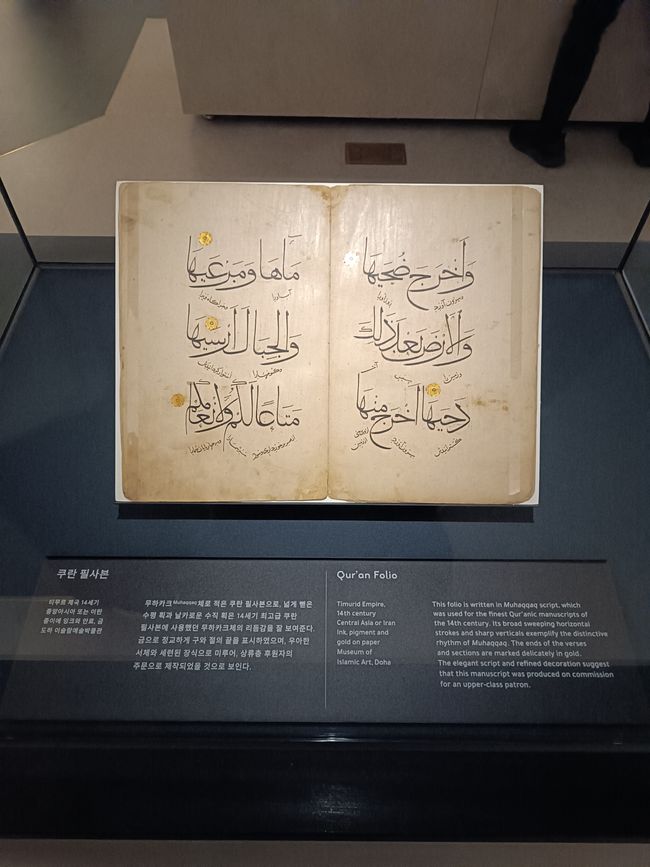 وَأَخْرَجَ ضُحَيهَا
وَالْأَرْضَ بَعْدَ ذَلِكَ
دَحَيهَا أَخْرَجَ مِنْهَا
مَاءَهَا وَمَرْعَيهَا
وَالْجِبَالَ أَرْسَيهَا
مَتَاعًا لَكُمْ وَلِأَنْعَامِكُمْ
쿠란 필사본
티무르 제국 14세기
중앙아시아 또는 이란
종이에 잉크와 안료, 금
도하 이슬람예술박물관
무하카크Muhaqqaq체로 적은 쿠란 필사본으로, 넓게 뻗은
수평 획과 날카로운 수직 획은 14세기 최고급 쿠란
필사본에 사용했던 무하카크체의 리듬감을 잘 보여준다.
금으로 정교하게 구와 절의 끝을 표시하였으며, 우아한
서체와 세련된 장식으로 미루어, 상류층 후원자의
주문으로 제작되었을 것으로 보인다.
Qur'an Folio
Timurid Empire,
14th century
Central Asia or Iran
Ink, pigment and
gold on paper
Museum of
Islamic Art, Doha
This folio is written in Muhaqqaq script, which
was used for the finest Qur'anic manuscripts of
the 14th century. Its broad sweeping horizontal
strokes and sharp verticals exemplify the distinctive
rhythm of Muhaqqaq. The ends of the verses
and sections are marked delicately in gold.
The elegant script and refined decoration suggest
that this manuscript was produced on commission
for an upper-class patron.